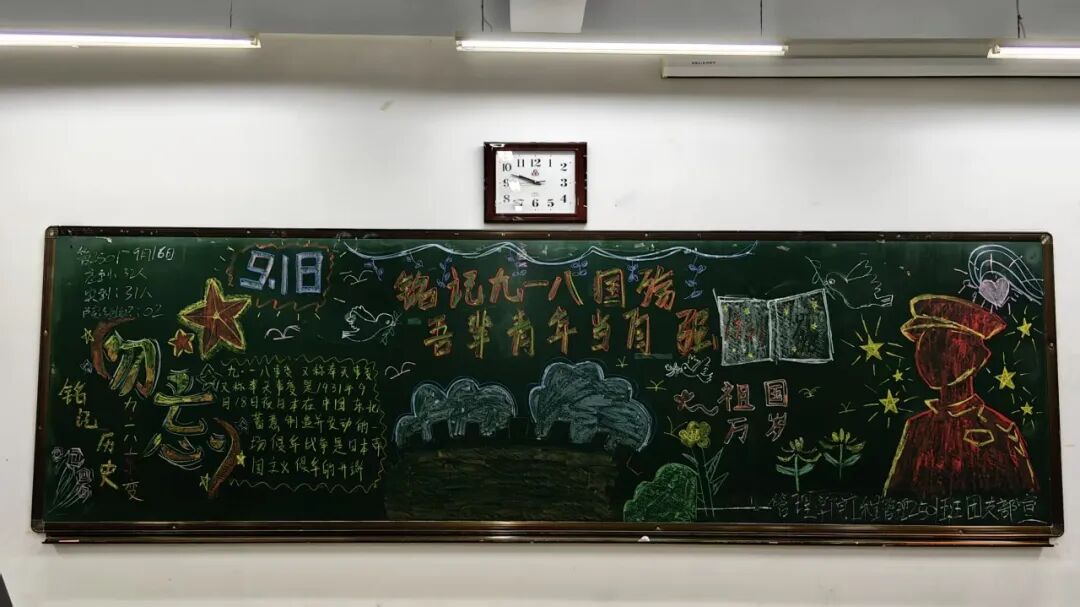 11 12 1
10 2
9 3
8 4
7 6 5
9月16日
应到:32人
实到:31人
9.18
铭记九一八国殇
吾辈青年当自强
勿忘
九一八事变
铭记历史
九一八事变又称奉天事变
又称奉天事变是1931年9
月18日日本在中国东北
蓄意制造并发动的一
场侵华战争是日本帝
国主义侵华的开端
祖国
万岁
管理 工程管理2501班团支部宣